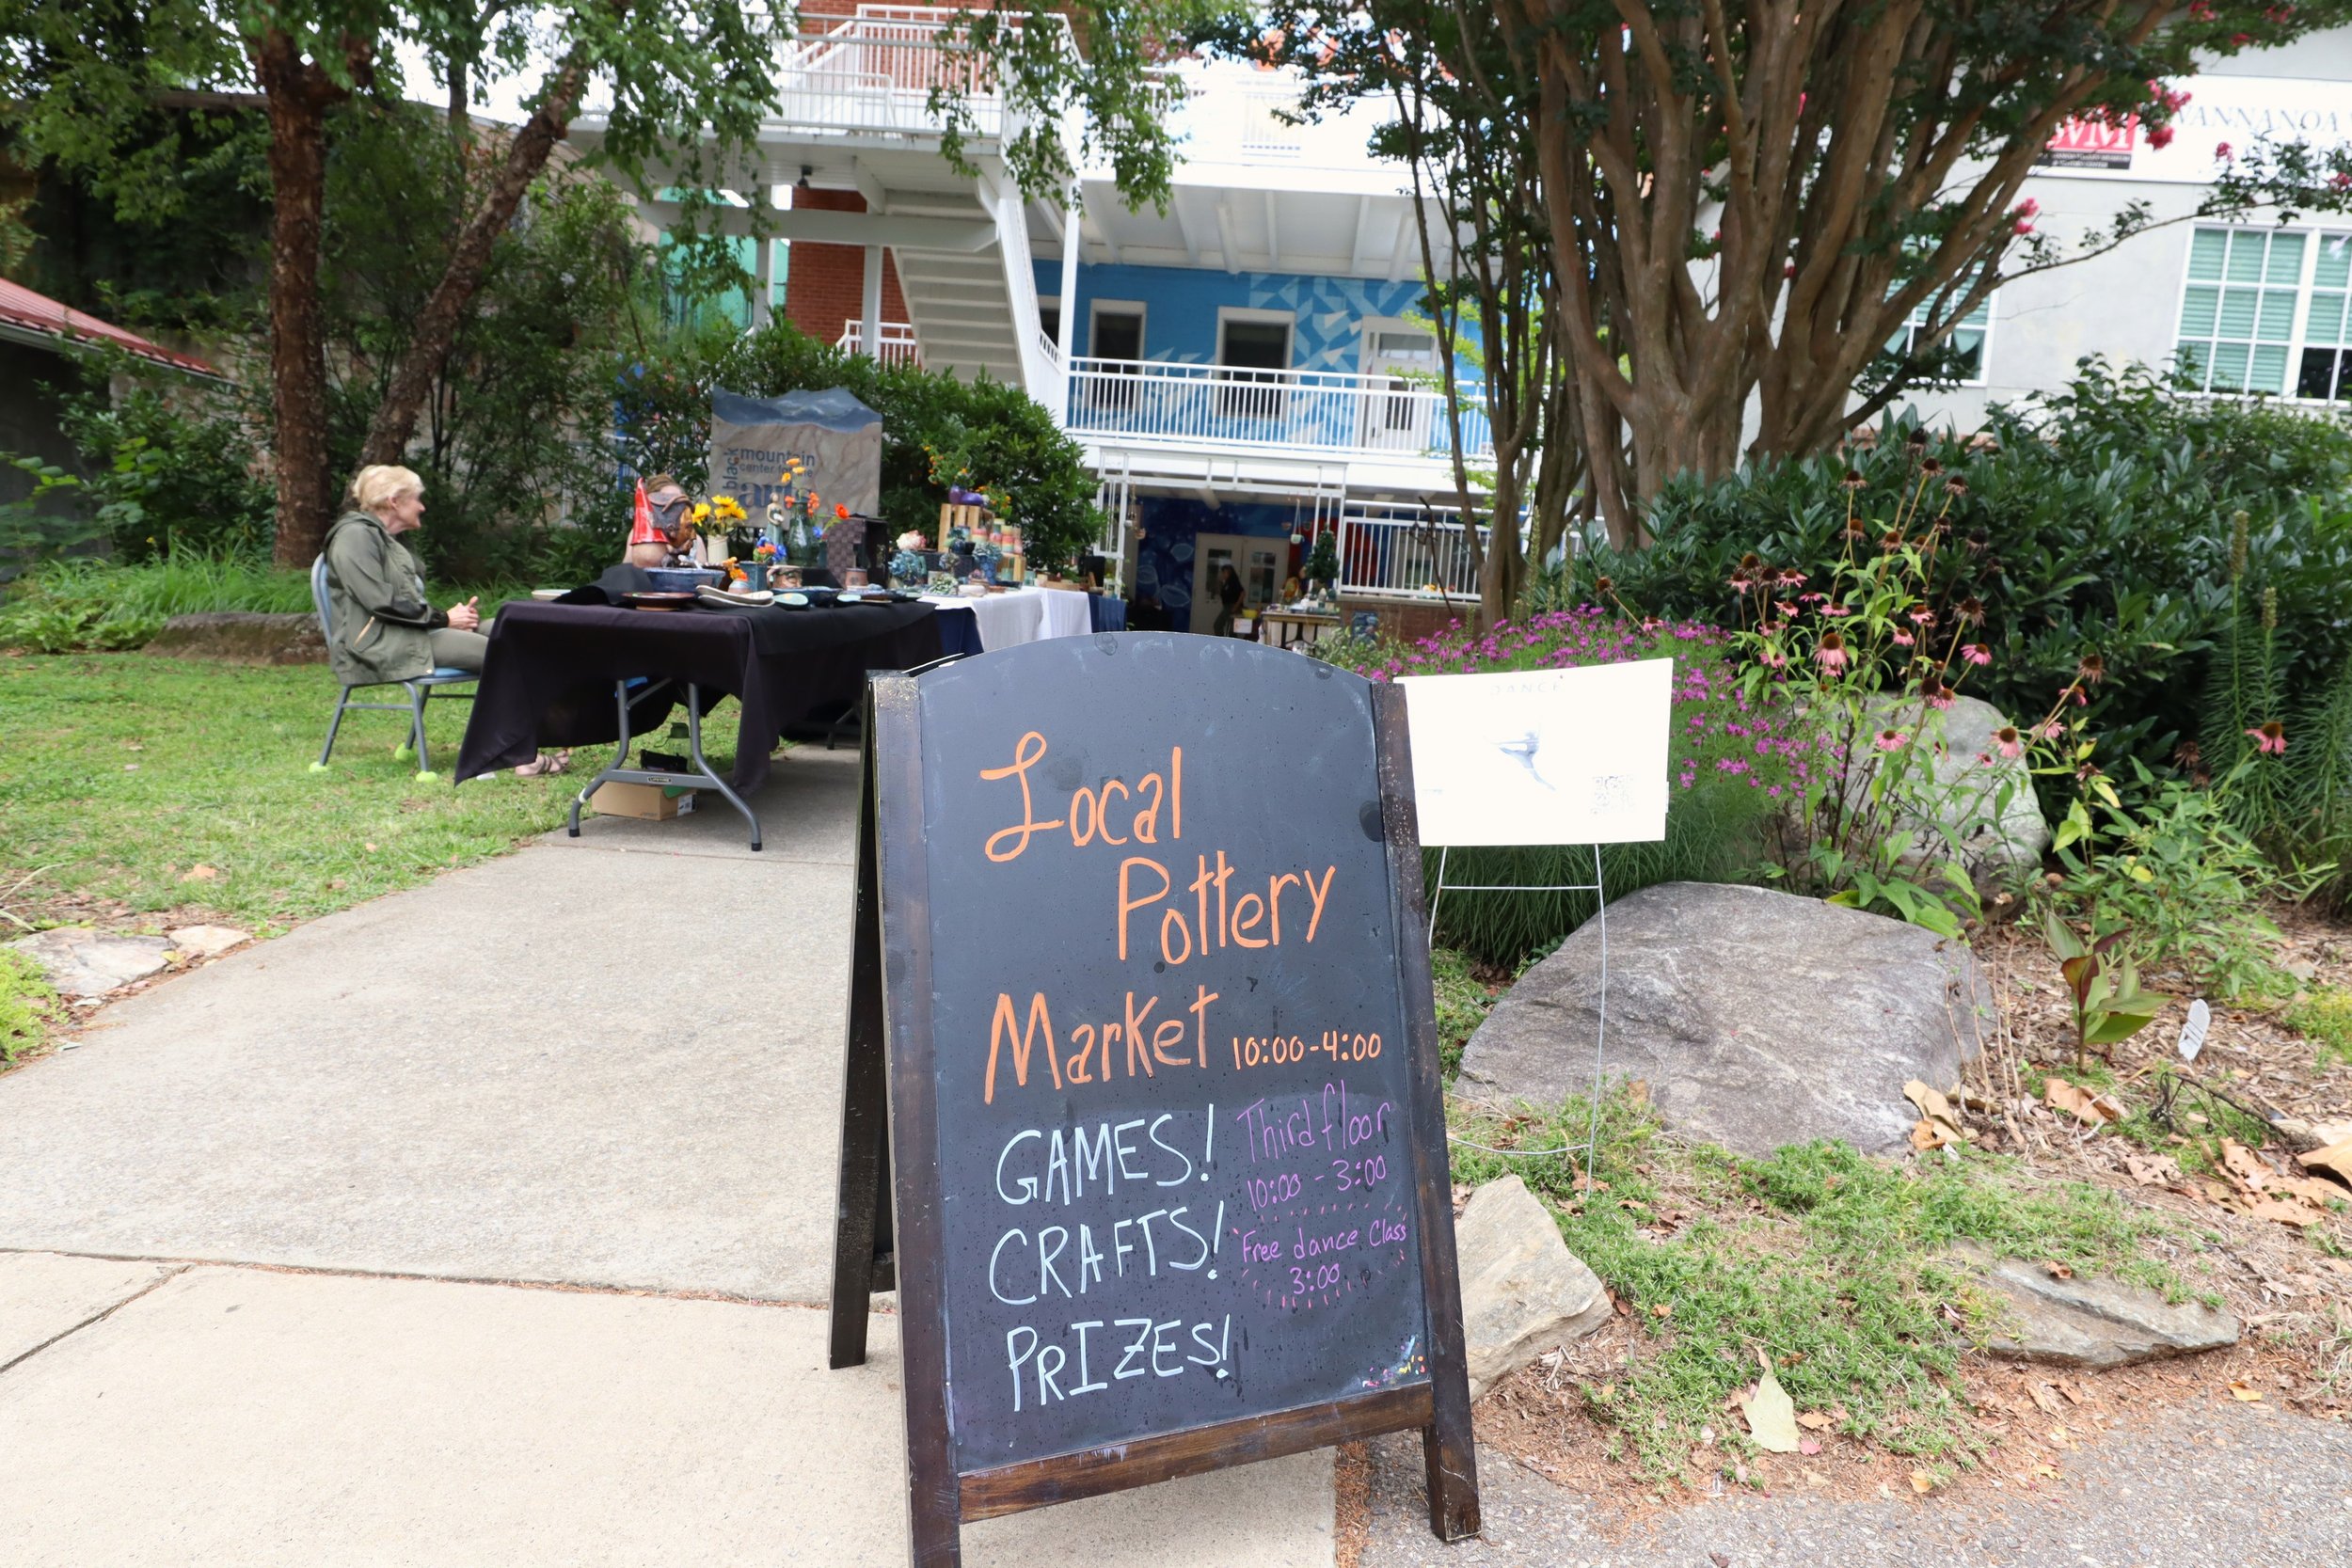 WANNANOA
VM
black
mountain
center for the
arts
DANCE
Local
Pottery
Market 10:00-4:00
GAMES!
CRAFTS!
PRIZES!
Third floor
10:00 - 3:00
Free dance Class
3:00